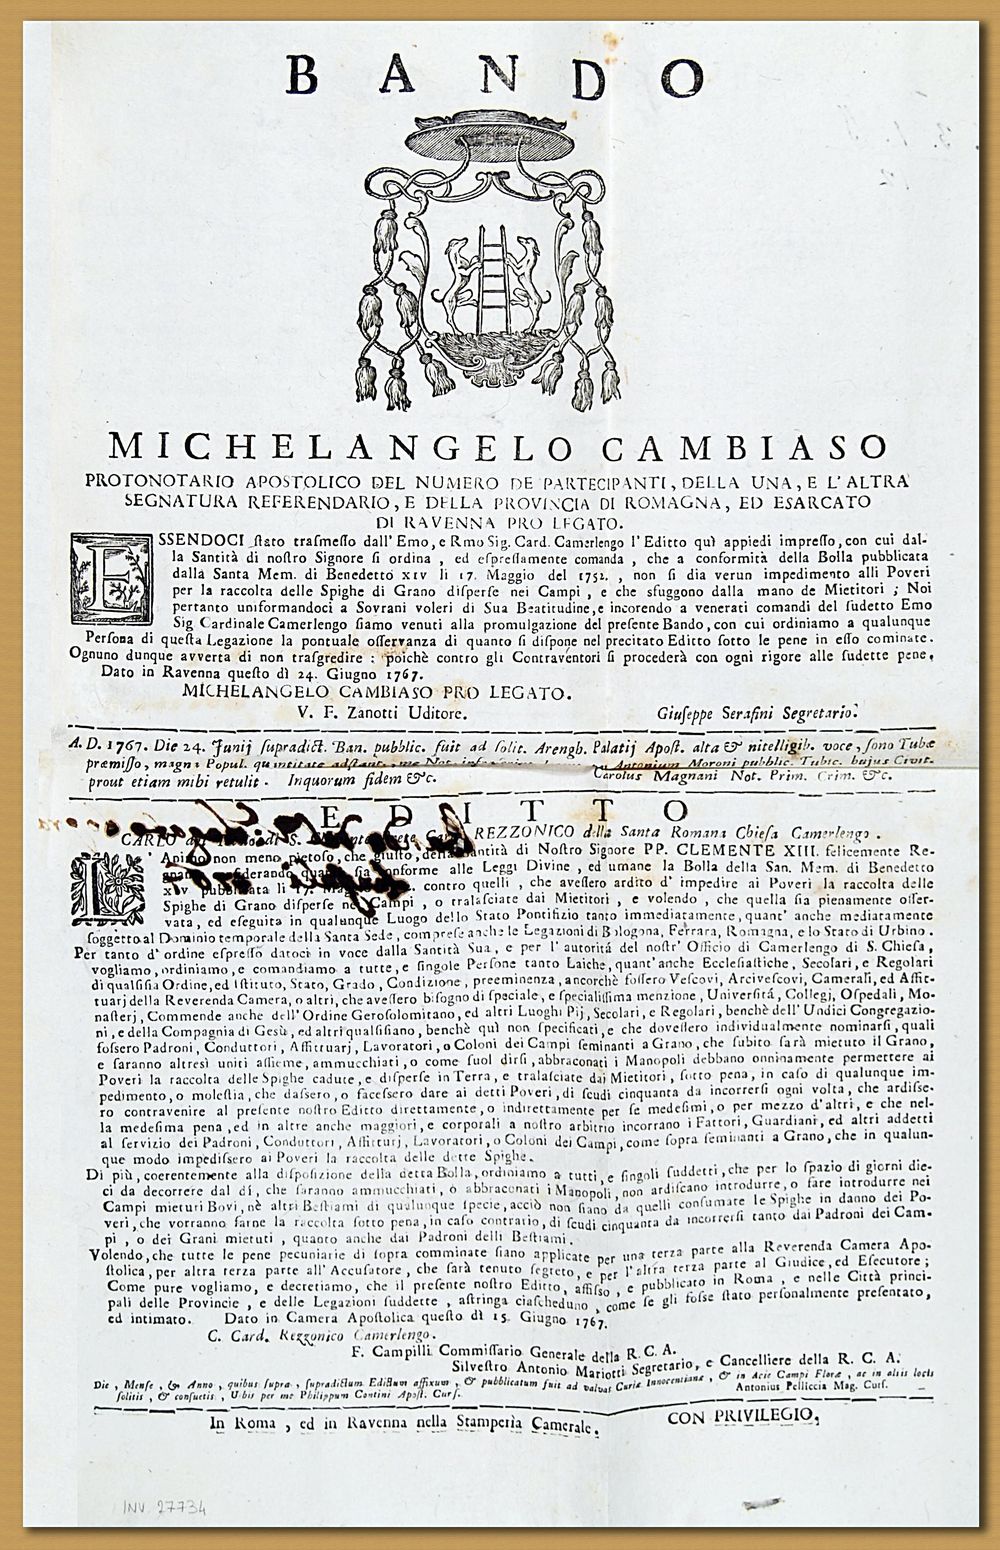 BANDO
MICHELANGELO CAMBIASO
PROTONOTARIO APOSTOLICO DEL NUMERO DE PARTECIPANTI, DELLA UNA, E L'ALTRA
SEGNATURA REFERENDARIO, E DELLA PROVINCIA DI ROMAGNA, ED ESARCATO
DI RAVENNA PRO LEGATO.
ESSENDOCI ſtato traſmeſſo dall' Emo, e Rmo Sig. Card. Camerlengo l' Editto quì appiedi impreſſo, con cui dal-
la Santità di noſtro Signore ſi ordina, ed eſpreſſamente comanda, che a conformità della Bolla pubblicata
dalla Santa Mem. di Benedetto XIV li 17. Maggio del 1752., non ſi dia verun impedimento alli Poveri
per la raccolta delle Spighe di Grano diſperſe nei Campi, e che sfuggono dalla mano de Mietitori; Noi
pertanto uniformandoci a Sovrani voleri di Sua Beatitudine, e incorendo a venerati comandi del ſudetto Emo
Sig Cardinale Camerlengo ſiamo venuti alla promulgazione del preſente Bando, con cui ordiniamo a qualunque
Perſona di queſta Legazione la pontuale oſſervanza di quanto ſi diſpone nel precitato Editto ſotto le pene in eſſo cominate.
Ognuno dunque avverta di non traſgredire: poichè contro gli Contraventori ſi procederà con ogni rigore alle ſudette pene.
Dato in Ravenna queſto dì 24. Giugno 1767.
MICHELANGELO CAMBIASO PRO LEGATO.
V. F. Zanotti Uditore. Giuſeppe Serafini Segretario.
A. D. 1767. Die 24. Junij ſupradict. Ban. pubblic. fuit ad ſolit. Arengh. Palatij Apoſt. alta & nitelligib. voce, ſono Tubæ
præmiſſo, magn. Popul. quantitate adſtante, me Not. Antonium Moroni pubblic. Tubic. hujus Civit.
prout etiam mihi retulit. Inquorum fidem &c. Carolus Magnani Not. Prim. Crim. &c.
EDITTO
CARLO REZZONICO della Santa Romana Chieſa Camerlengo.
L' Animo non meno pietoſo, che giuſto, della Santità di Noſtro Signore PP. CLEMENTE XIII. felicemente Re-
ſia conforme alle Leggi Divine, ed umane la Bolla della San. Mem. di Benedetto
XIV pubblicata li 17. contro quelli, che aveſſero ardito d' impedire ai Poveri la raccolta delle
Spighe di Grano diſperſe nei Campi, o tralaſciate dai Mietitori, e volendo, che quella ſia pienamente oſſer-
vata, ed eſeguita in qualunque Luogo dello Stato Pontifizio tanto immediatamente, quant' anche mediatamente
ſoggetto al Dominio temporale della Santa Sede, compreſe anche le Legazioni di Bologna, Ferrara, Romagna, e lo Stato di Urbino.
Per tanto d' ordine eſpreſſo datoci in voce dalla Santità Sua, e per l' autoritá del noſtr' Officio di Camerlengo di S. Chieſa,
vogliamo, ordiniamo, e comandiamo a tutte, e ſingole Perſone tanto Laiche, quant' anche Eccleſiaſtiche, Secolari, e Regolari
di qualſiſia Ordine, ed Iſtituto, Stato, Grado, Condizione, preeminenza, ancorchè foſſero Veſcovi, Arciveſcovi, Camerali, ed Affit-
tuarj della Reverenda Camera, o altri, che aveſſero biſogno di ſpeciale, e ſpecialiſſima menzione, Univerſitá, Collegj, Oſpedali, Mo-
naſterj, Commende anche dell' Ordine Geroſolomitano, ed altri Luoghi Pij, Secolari, e Regolari, benchè dell' Undici Congregazio-
ni, e della Compagnia di Gesù, ed altri qualſiſiano, benchè quì non ſpecificati, e che doveſſero individualmente nominarſi, quali
foſſero Padroni, Conduttori, Affittuarj, Lavoratori, o Coloni dei Campi ſeminanti a Grano, che ſubito ſarà mietuto il Grano,
e ſaranno altresì uniti aſſieme, ammucchiati, o come ſuol dirſi, abbraconati i Manopoli debbano onninamente permettere ai
Poveri la raccolta delle Spighe cadute, e diſperſe in Terra, e tralaſciate dai Mietitori, ſotto pena, in caſo di qualunque im-
pedimento, o moleſtia, che daſſero, o faceſſero dare ai detti Poveri, di ſcudi cinquanta da incorrerſi ogni volta, che ardiſſe-
ro contravenire al preſente noſtro Editto direttamente, o indirettamente per ſe medeſimi, o per mezzo d' altri, e che nel-
la medeſima pena, ed in altre anche maggiori, e corporali a noſtro arbitrio incorrano i Fattori, Guardiani, ed altri addetti
al ſervizio dei Padroni, Conduttori, Affitturj, Lavoratori, o Coloni dei Campi, come ſopra ſeminanti a Grano, che in qualun-
que modo impediſſero ai Poveri la raccolta delle dette Spighe.
Di più, coerentemente alla diſpoſizione della detta Bolla, ordiniamo a tutti, e ſingoli ſuddetti, che per lo ſpazio di giorni die-
ci da decorrere dal dí, che ſaranno ammucchiati, o abbraconati i Manopoli, non ardiſcano introdurre, o fare introdurre nei
Campi mieturi Bovi, nè altri Beſtiami di qualunque ſpecie, acciò non ſiano da quelli conſumate le Spighe in danno dei Po-
veri, che vorranno farne la raccolta ſotto pena, in caſo contrario, di ſcudi cinquanta da incorrerſi tanto dai Padroni dei Cam-
pi, o dei Grani mietuti, quanto anche dai Padroni delli Beſtiami.
Volendo, che tutte le pene pecuniarie di ſopra comminate ſiano applicate per una terza parte alla Reverenda Camera Apo-
ſtolica, per altra terza parte all' Accuſatore, che ſarà tenuto ſegreto, e per l' altra terza parte al Giudice, ed Eſecutore;
Come pure vogliamo, e decretiamo, che il preſente noſtro Editto, affiſſo, e pubblicato in Roma, e nelle Città princi-
pali delle Provincie, e delle Legazioni ſuddette, aſtringa ciaſcheduno, come ſe gli foſſe ſtato perſonalmente preſentato,
ed intimato. Dato in Camera Apoſtolica queſto dì 15. Giugno 1767.
C. Card. Rezzonico Camerlengo.
F. Campilli Commiſſario Generale della R. C. A.
Silveſtro Antonio Mariotti Segretario, e Cancelliere della R. C. A.
Die, Menſe, & Anno, quibus ſupra, ſupradictum Edictum affixum, & pubblicatum fuit ad valvas Curiæ Innocentianæ, & in Acie Campi Floræ, ac in aliis locis
ſolitis, & conſuetis, Ubis per me Philippum Contini Apoſt. Curſ. Antonius Pelliccia Mag. Curſ.
In Roma, ed in Ravenna nella Stamperia Camerale. CON PRIVILEGIO.
INV. 27734